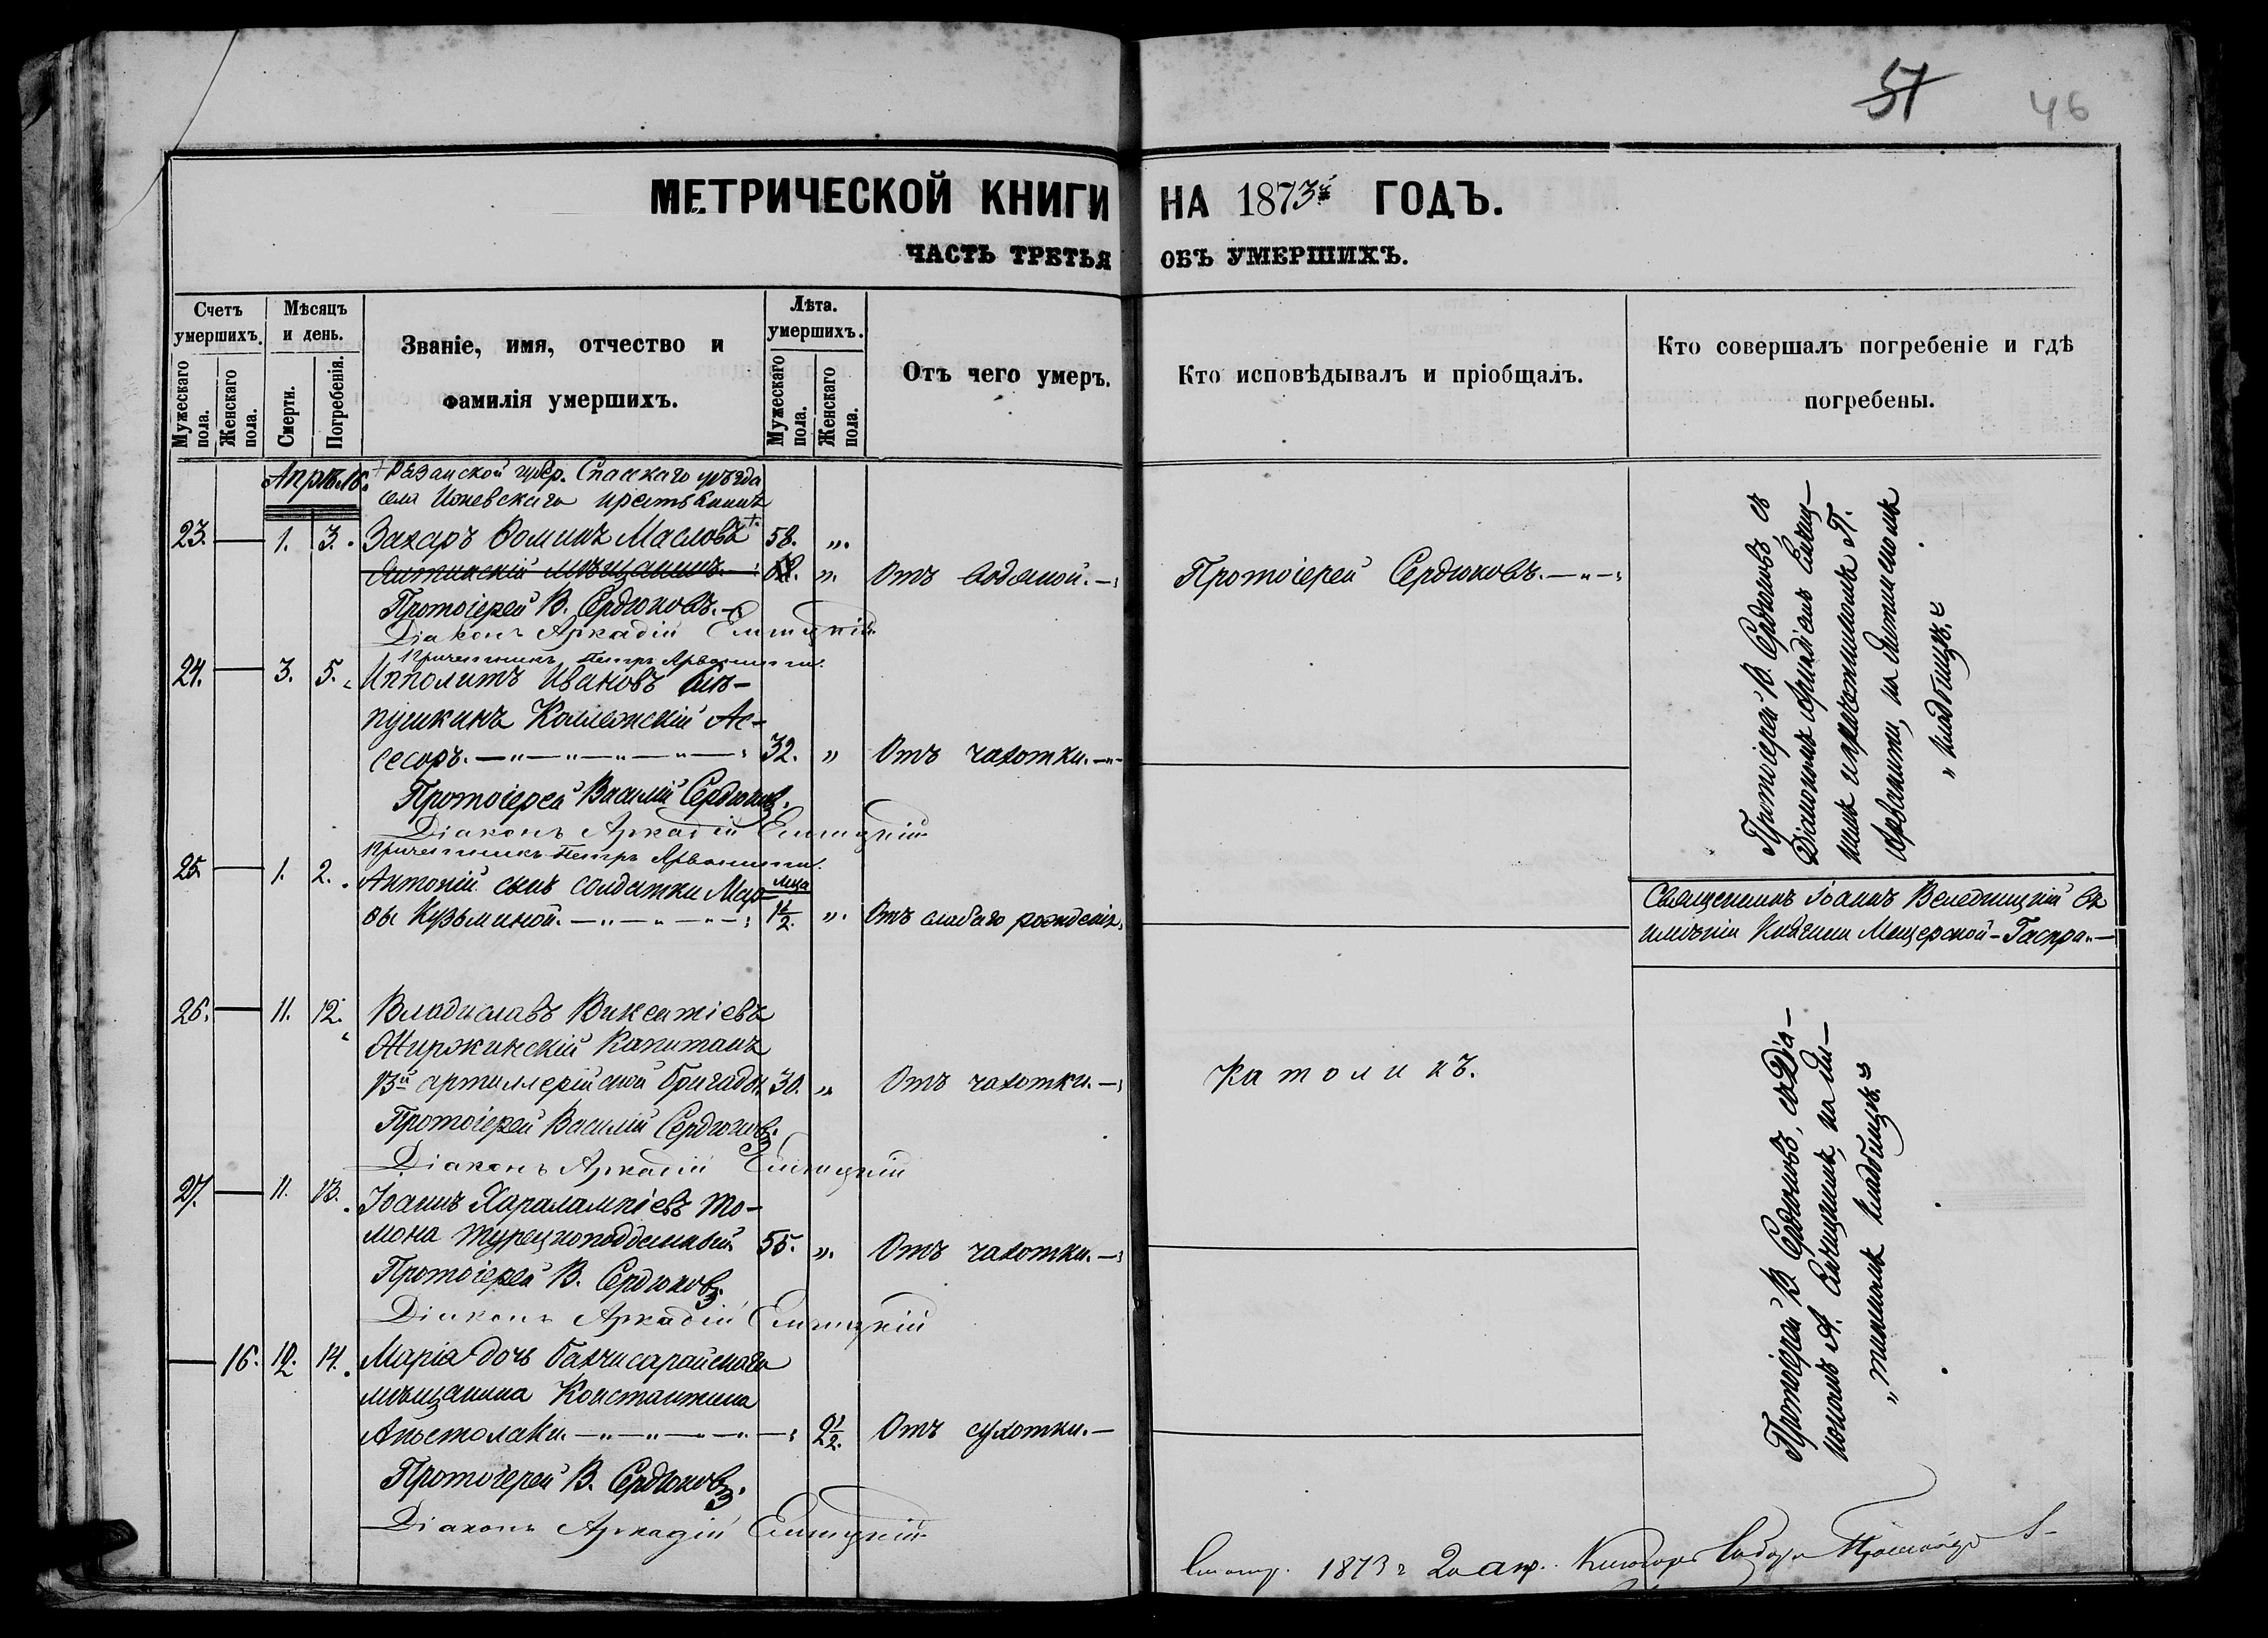 51
46
МЕТРИЧЕСКОЙ КНИГИ НА 1873й ГОДЪ.
ЧАСТЬ ТРЕТЬЯ ОБЪ УМЕРШИХЪ.
Счетъ умершихъ.
Мужескаго пола.
Женскаго пола.
Мѣсяцъ и день.
Смерти.
Погребенія.
Званіе, имя, отчество и
фамилія умершихъ.
Лѣта. умершихъ.
Мужескаго пола.
Женскаго пола.
Отъ чего умеръ.
Кто исповѣдывалъ и пріобщалъ.
Кто совершалъ погребеніе и гдѣ
погребены.
Апрѣль.
+ Рязанской губер. Спасскаго уѣзда
села Ижевскаго крестьянинъ
23. — 1. 3. Захаръ Ѳоминъ Масловъ + 58. „
Ялтинскій мѣщанинъ. „ Отъ водяной. Протоіерей Сердюковъ.
Протоіерей В. Сердюковъ.
Діаконъ Аркадій
Причетникъ Петръ
24. — 3. 5. Ипполитъ Ивановъ
Коллежскій Ас-
сесоръ. 32. „ Отъ чахотки.
Протоіерей Василій Сердюковъ.
Діаконъ Аркадій
Причетникъ Петръ
Протоіерей В. Сердюковъ, съ
Діакономъ Аркадіемъ
и причетникомъ П.
на Ялтинскомъ
„ кладбищѣ. „
25 — 1. 2. Антоній сынъ солдатки Мар-
ѳы Кузьминой. мца 1½. „ Отъ слабаго рожденія.
Священникъ Іоаннъ въ
имѣніи Княгини Мещерской - Гаспра.
26. — 11. 12. Владиславъ Викентіевъ
Жиржинскій Капитанъ
13й артиллерійской бригады. 30. „ Отъ чахотки. Католикъ.
Протоіерей Василій Сердюковъ.
Діаконъ Аркадій
27. — 11. 13. Іоаннъ Харалампіевъ То-
мона турецкоподданный. 55. „ Отъ чахотки.
Протоіерей В. Сердюковъ.
Діаконъ Аркадій
— 16. 12. 14. Марія дочь бахчисарайскаго
мѣщанина Константина
Апостолаки. 2½. Отъ сухотки.
Протоіерей В. Сердюковъ.
Діаконъ Аркадій
Протоіерей В. Сердюковъ, съ Діа-
кономъ А. на Ял-
„ тинскомъ кладбищѣ. „
1873 г